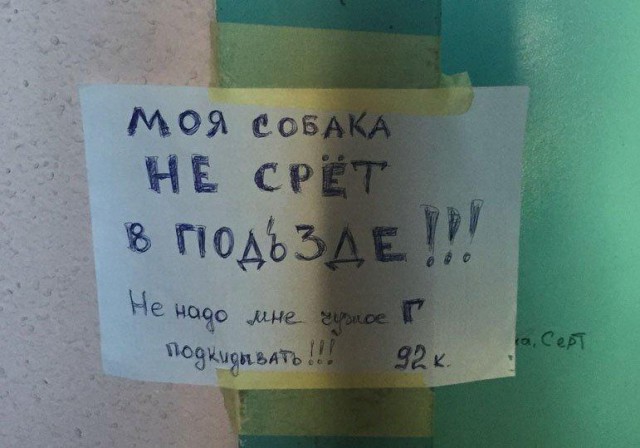 МОЯ СОБАКА
НЕ СРЁТ
В ПОДЪЗДЕ!!!
Не надо мне чужое Г
подкидывать!!! 92 к.